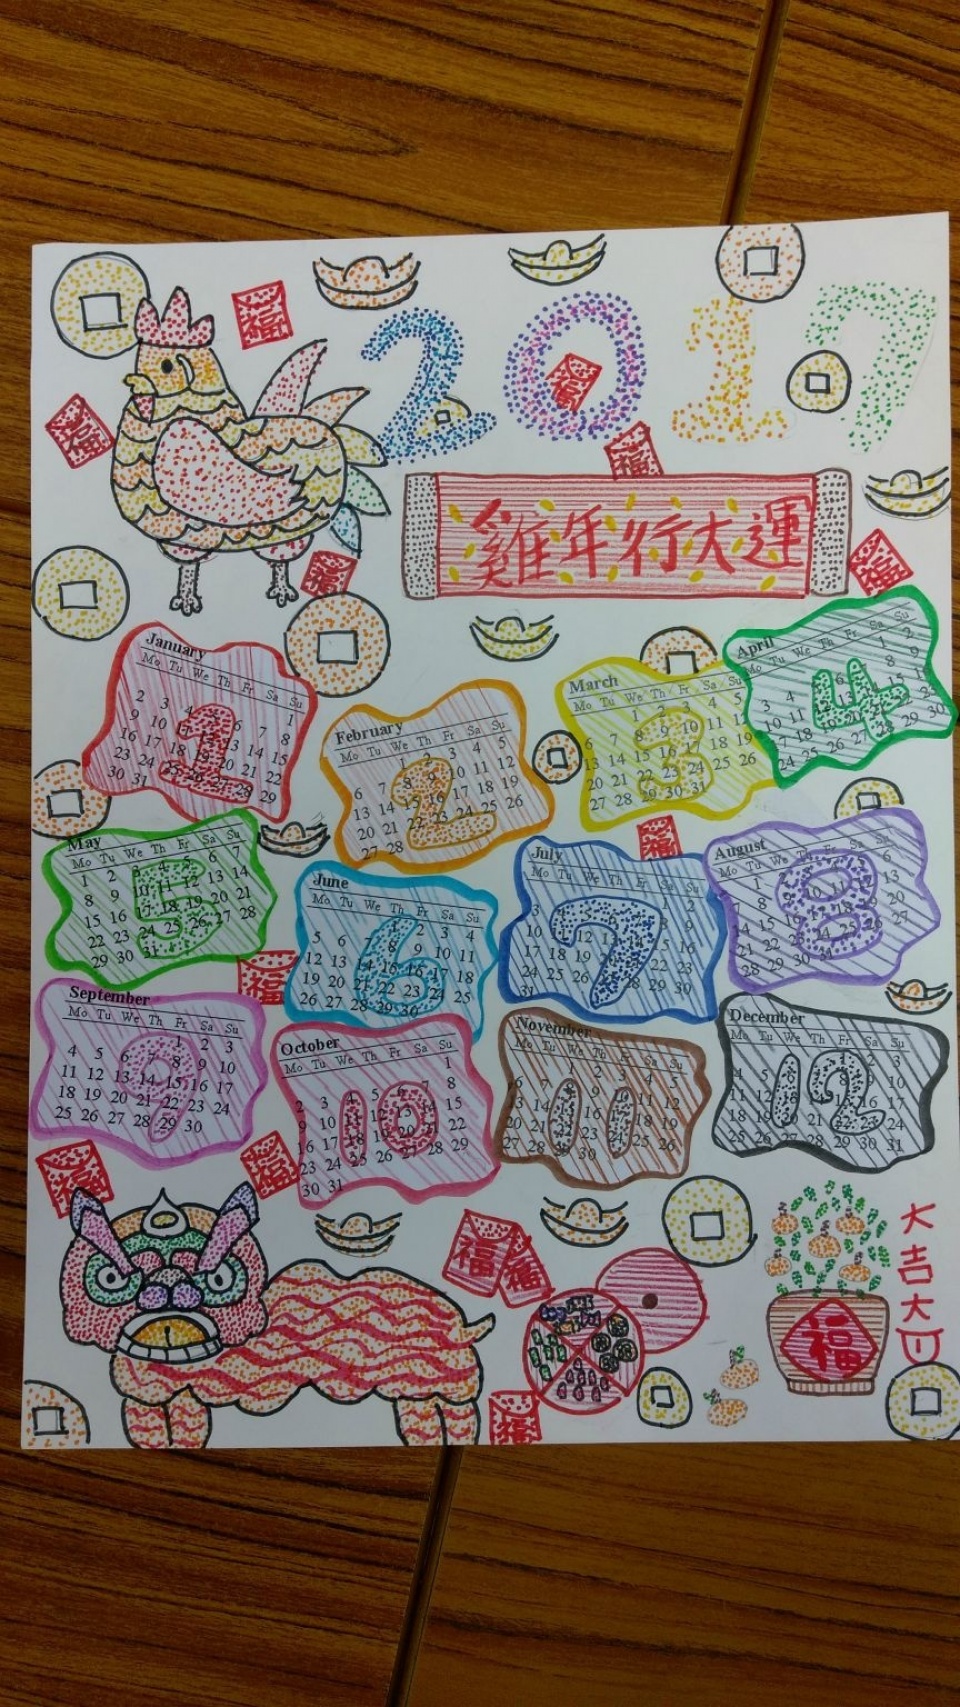 福
2017
福
福
福
雞年行大運
福
福
January
Mo Tu We Th Fr Sa Su
1
2 3 4 5 6 7 8
9 10 11 12 13 14 15
16 17 18 19 20 21 22
23 24 25 26 27 28 29
30 31
1
February
Mo Tu We Th Fr Sa Su
1 2 3 4 5
6 7 8 9 10 11 12
13 14 15 16 17 18 19
20 21 22 23 24 25 26
27 28
2
March
Mo Tu We Th Fr Sa Su
1 2 3 4 5
6 7 8 9 10 11 12
13 14 15 16 17 18 19
20 21 22 23 24 25 26
27 28 29 30 31
3
April
Mo Tu We Th Fr Sa Su
1 2
3 4 5 6 7 8 9
10 11 12 13 14 15 16
17 18 19 20 21 22 23
24 25 26 27 28 29 30
4
May
Mo Tu We Th Fr Sa Su
1 2 3 4 5 6 7
8 9 10 11 12 13 14
15 16 17 18 19 20 21
22 23 24 25 26 27 28
29 30 31
5
June
Mo Tu We Th Fr Sa Su
1 2 3 4
5 6 7 8 9 10 11
12 13 14 15 16 17 18
19 20 21 22 23 24 25
26 27 28 29 30
6
福
July
Mo Tu We Th Fr Sa Su
1 2
3 4 5 6 7 8 9
10 11 12 13 14 15 16
17 18 19 20 21 22 23
24 25 26 27 28 29 30
31
7
August
Mo Tu We Th Fr Sa Su
1 2 3 4 5 6
7 8 9 10 11 12 13
14 15 16 17 18 19 20
21 22 23 24 25 26 27
28 29 30 31
8
福
September
Mo Tu We Th Fr Sa Su
1 2 3
4 5 6 7 8 9 10
11 12 13 14 15 16 17
18 19 20 21 22 23 24
25 26 27 28 29 30
9
October
Mo Tu We Th Fr Sa Su
1
2 3 4 5 6 7 8
9 10 11 12 13 14 15
16 17 18 19 20 21 22
23 24 25 26 27 28 29
30 31
10
November
Mo Tu We Th Fr Sa Su
1 2 3 4 5
6 7 8 9 10 11 12
13 14 15 16 17 18 19
20 21 22 23 24 25 26
27 28 29 30
11
December
Mo Tu We Th Fr Sa Su
1 2 3
4 5 6 7 8 9 10
11 12 13 14 15 16 17
18 19 20 21 22 23 24
25 26 27 28 29 30 31
12
福
福
福
福
福
福
大吉大